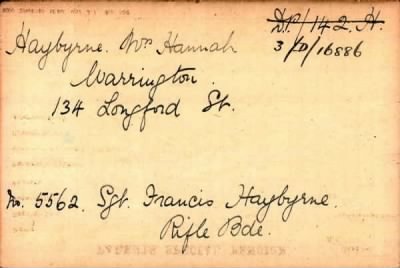 D.P./142.H.
Haybyrne. Mrs Hannah
3/D/16886
Warrington.
134 Longford St.
No. 5562. Sgt. Francis Haybyrne.
Rifle Bde.